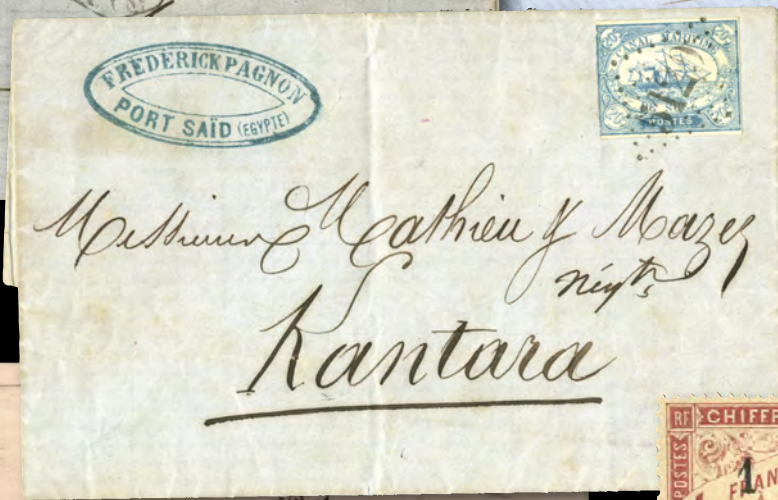 FREDERICK PAGNON
PORT SAÏD (EGYPTE)
20 CANAL MARITIME 20
POSTES
Messieurs Mathieu & Mazez
négts
Kantara
RF CHIFFR
POSTES
1
FRAN